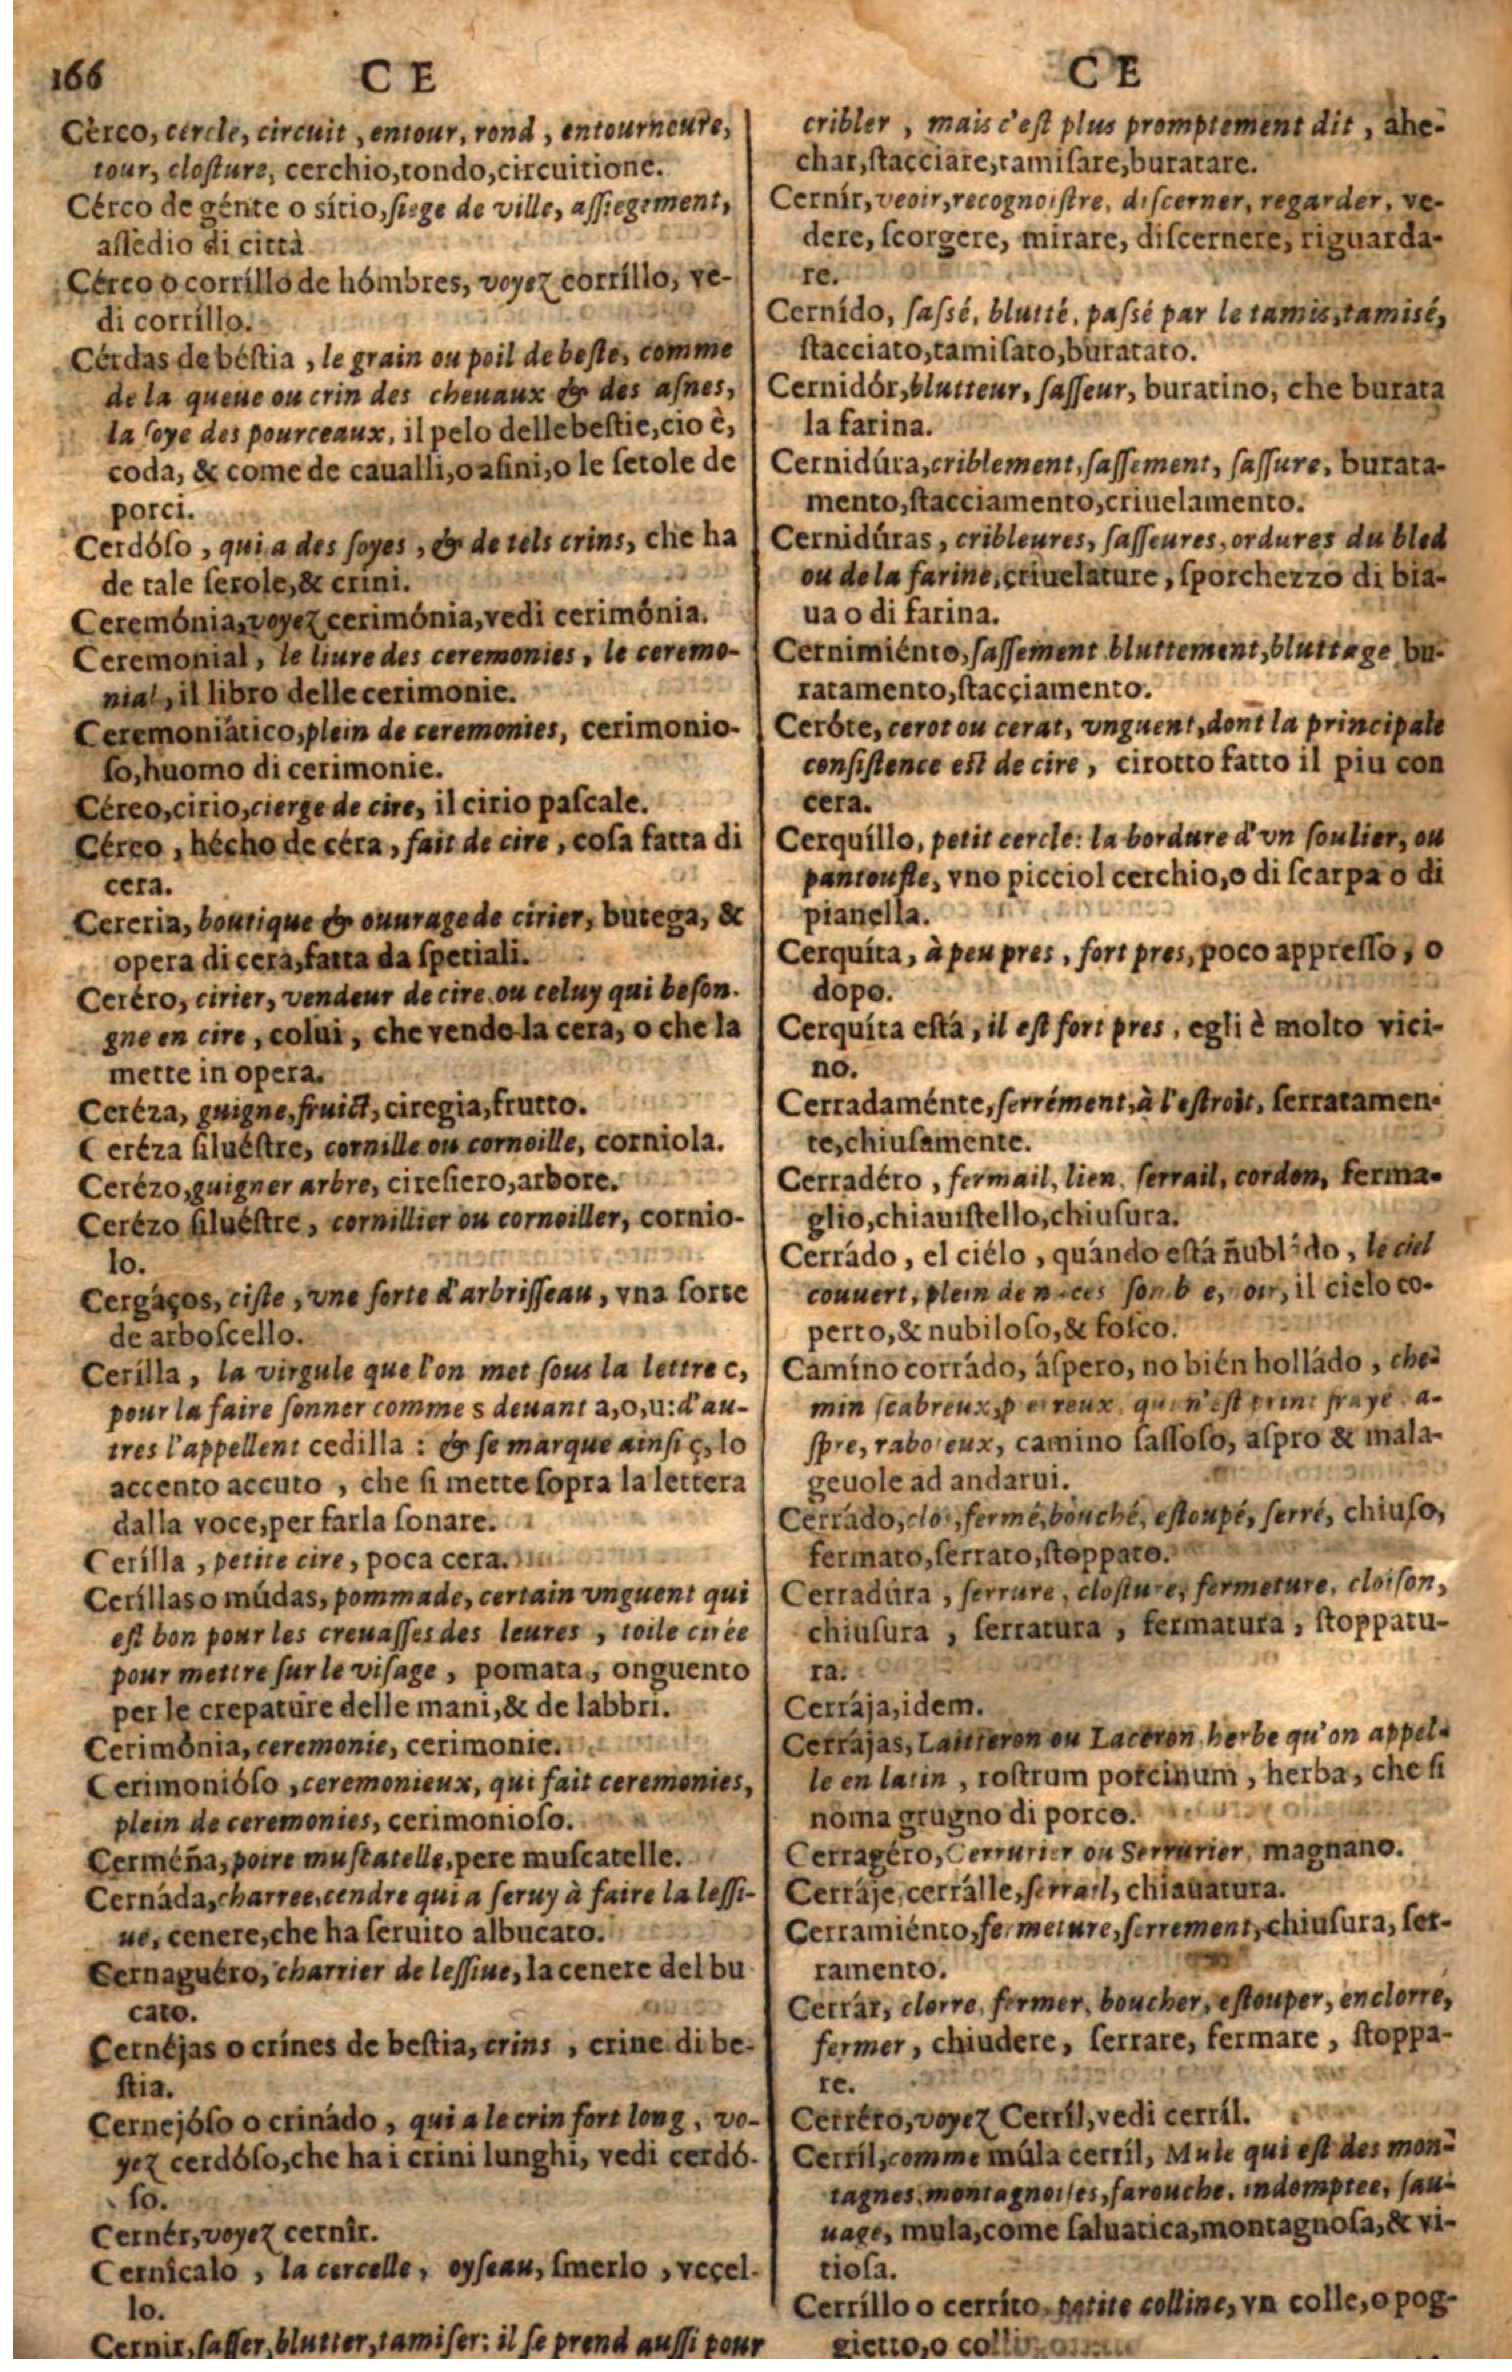 166 CE
Cérco, cercle, circuit, entour, rond, entourneure,
tour, closture, cerchio, tondo, circuitione.
Cérco de génte o sítio, siege de ville, assiegement,
assedio di città
Cérco o corríllo de hómbres, voyez corríllo, ve-
di corríllo.
Cérdas de béstia, le grain ou poil de beste, comme
de la queue ou crin des cheuaux & des asnes,
la soye des pourceaux, il pelo delle bestie, cio è,
coda, & come de caualli, o asini, o le setole de
porci.
Cerdóso, qui a des soyes, & de tels crins, che ha
de tale setole, & crini.
Ceremónia, voyez cerimónia, vedi cerimónia.
Ceremonial, le liure des ceremonies, le ceremo-
nial, il libro delle cerimonie.
Ceremoniático, plein de ceremonies, cerimonio-
so, huomo di cerimonie.
Céreo, cirio, cierge de cire, il cirio pascale.
Céreo, hécho de céra, fait de cire, cosa fatta di
cera.
Cereria, boutique & ouurage de cirier, butega, &
opera di cera, fatta da spetiali.
Ceréro, cirier, vendeur de cire, ou celuy qui beson-
gne en cire, colui, che vende la cera, o che la
mette in opera.
Ceréza, guigne, fruict, ciregia, frutto.
Ceréza siluéstre, cornille ou cornoille, corniola.
Cerézo, guigner arbre, ciresiero, arbore.
Cerézo siluéstre, cornillier ou cornoiller, cornio-
lo.
Cergáços, ciste, vne sorte d'arbrisseau, vna sorte
de arboscello.
Cerílla, la virgule que l'on met sous la lettre c,
pour la faire sonner comme s deuant a, o, u: d'au-
tres l'appellent cedilla: & se marque ainsi ç, lo
accento accuto, che si mette sopra la lettera
dalla voce, per farla sonare.
Cerílla, petite cire, poca cera.
Ceríllas o múdas, pommade, certain vnguent qui
est bon pour les creuasses des leures, toile cirée
pour mettre sur le visage, pomata, onguento
per le crepature delle mani, & de labbri.
Cerimónia, ceremonie, cerimonie.
Cerimonióso, ceremonieux, qui fait ceremonies,
plein de ceremonies, cerimonioso.
Cerméña, poire muscatelle, pere muscatelle.
Cernáda, charree, cendre qui a seruy à faire la lessi-
ue, cenere, che ha seruito al bucato.
Cernaguéro, charrier de lessiue, la cenere del bu
cato.
Cernéjas o crínes de bestia, crins, crine di be-
stia.
Cernejóso o crinádo, qui a le crin fort long, vo-
yez cerdóso, che ha i crini lunghi, vedi cerdó-
so.
Cernér, voyez cernír.
Cernícalo, la cercelle, oyseau, smerlo, vçel-
lo.
Cernir, sasser, blutter, tamiser: il se prend aussi pour
CE
cribler, mais c'est plus promptement dit, ahe-
char, stacciare, tamisare, buratare.
Cernír, veoir, recognoistre, discerner, regarder, ve-
dere, scorgere, mirare, discernere, riguarda-
re.
Cernído, sassé, blutté, passé par le tamis, tamisé,
stacciato, tamisato, buratato.
Cernidór, blutteur, sasseur, buratino, che burata
la farina.
Cernidúra, criblement, sassement, sassure, burata-
mento, stacciamento, criuelamento.
Cernidúras, cribleures, sasseures, ordures du bled
ou de la farine, criuelature, sporchezzo di bia-
ua o di farina.
Cernimiénto, sassement bluttement, bluttage bu-
ratamento, stacciamento.
Ceróte, cerot ou cerat, vnguent, dont la principale
consistence est de cire, cirotto fatto il piu con
cera.
Cerquíllo, petit cercle: la bordure d'vn soulier, ou
pantoufle, vno picciol cerchio, o di scarpa o di
pianella.
Cerquíta, à peu pres, fort pres, poco appresso, o
dopo.
Cerquíta está, il est fort pres, egli è molto vici-
no.
Cerradaménte, serrément, à l'estroit, serratamen-
te, chiusamente.
Cerradéro, fermail, lien, serrail, cordon, ferma-
glio, chiauistello, chiusura.
Cerrádo, el ciélo, quándo está ñubládo, le ciel
couuert, plein de il cielo co-
perto, & nubiloso, & fosco.
Camíno corrádo, áspero, no bién holládo, che-
min scabreux, qui n'est point frayé, a-
spre, raboteux, camino sassoso, aspro & mala-
geuole ad andarui.
Cerrádo, clos, fermé, bouché, estoupé, serré, chiuso,
fermato, serrato, stoppato.
Cerradúra, serrure, closture, fermeture, cloison,
chiusura, serratura, fermatura, stoppatu-
ra.
Cerrája, idem.
Cerrájas, Laitteron ou Laceron herbe qu'on appel-
le en latin, rostrum porcinum, herba, che si
noma grugno di porco.
Cerragéro, Cerrurier ou Serrurier, magnano.
Cerráje, cerrálle, serrail, chiauatura.
Cerramiénto, fermeture, serrement, chiusura, ser-
ramento.
Cerrár, clorre, fermer, boucher, estouper, enclorre,
fermer, chiudere, serrare, fermare, stoppa-
re.
Cerréro, voyez Cerríl, vedi cerríl.
Cerríl, comme múla cerríl, Mule qui est des mon-
tagnes, montagnoises, farouche, indomptee, sau-
uage, mula, come saluatica, montagnosa, & vi-
tiosa.
Cerríllo o cerríto, petite colline, vn colle, o pog-
gietto, o